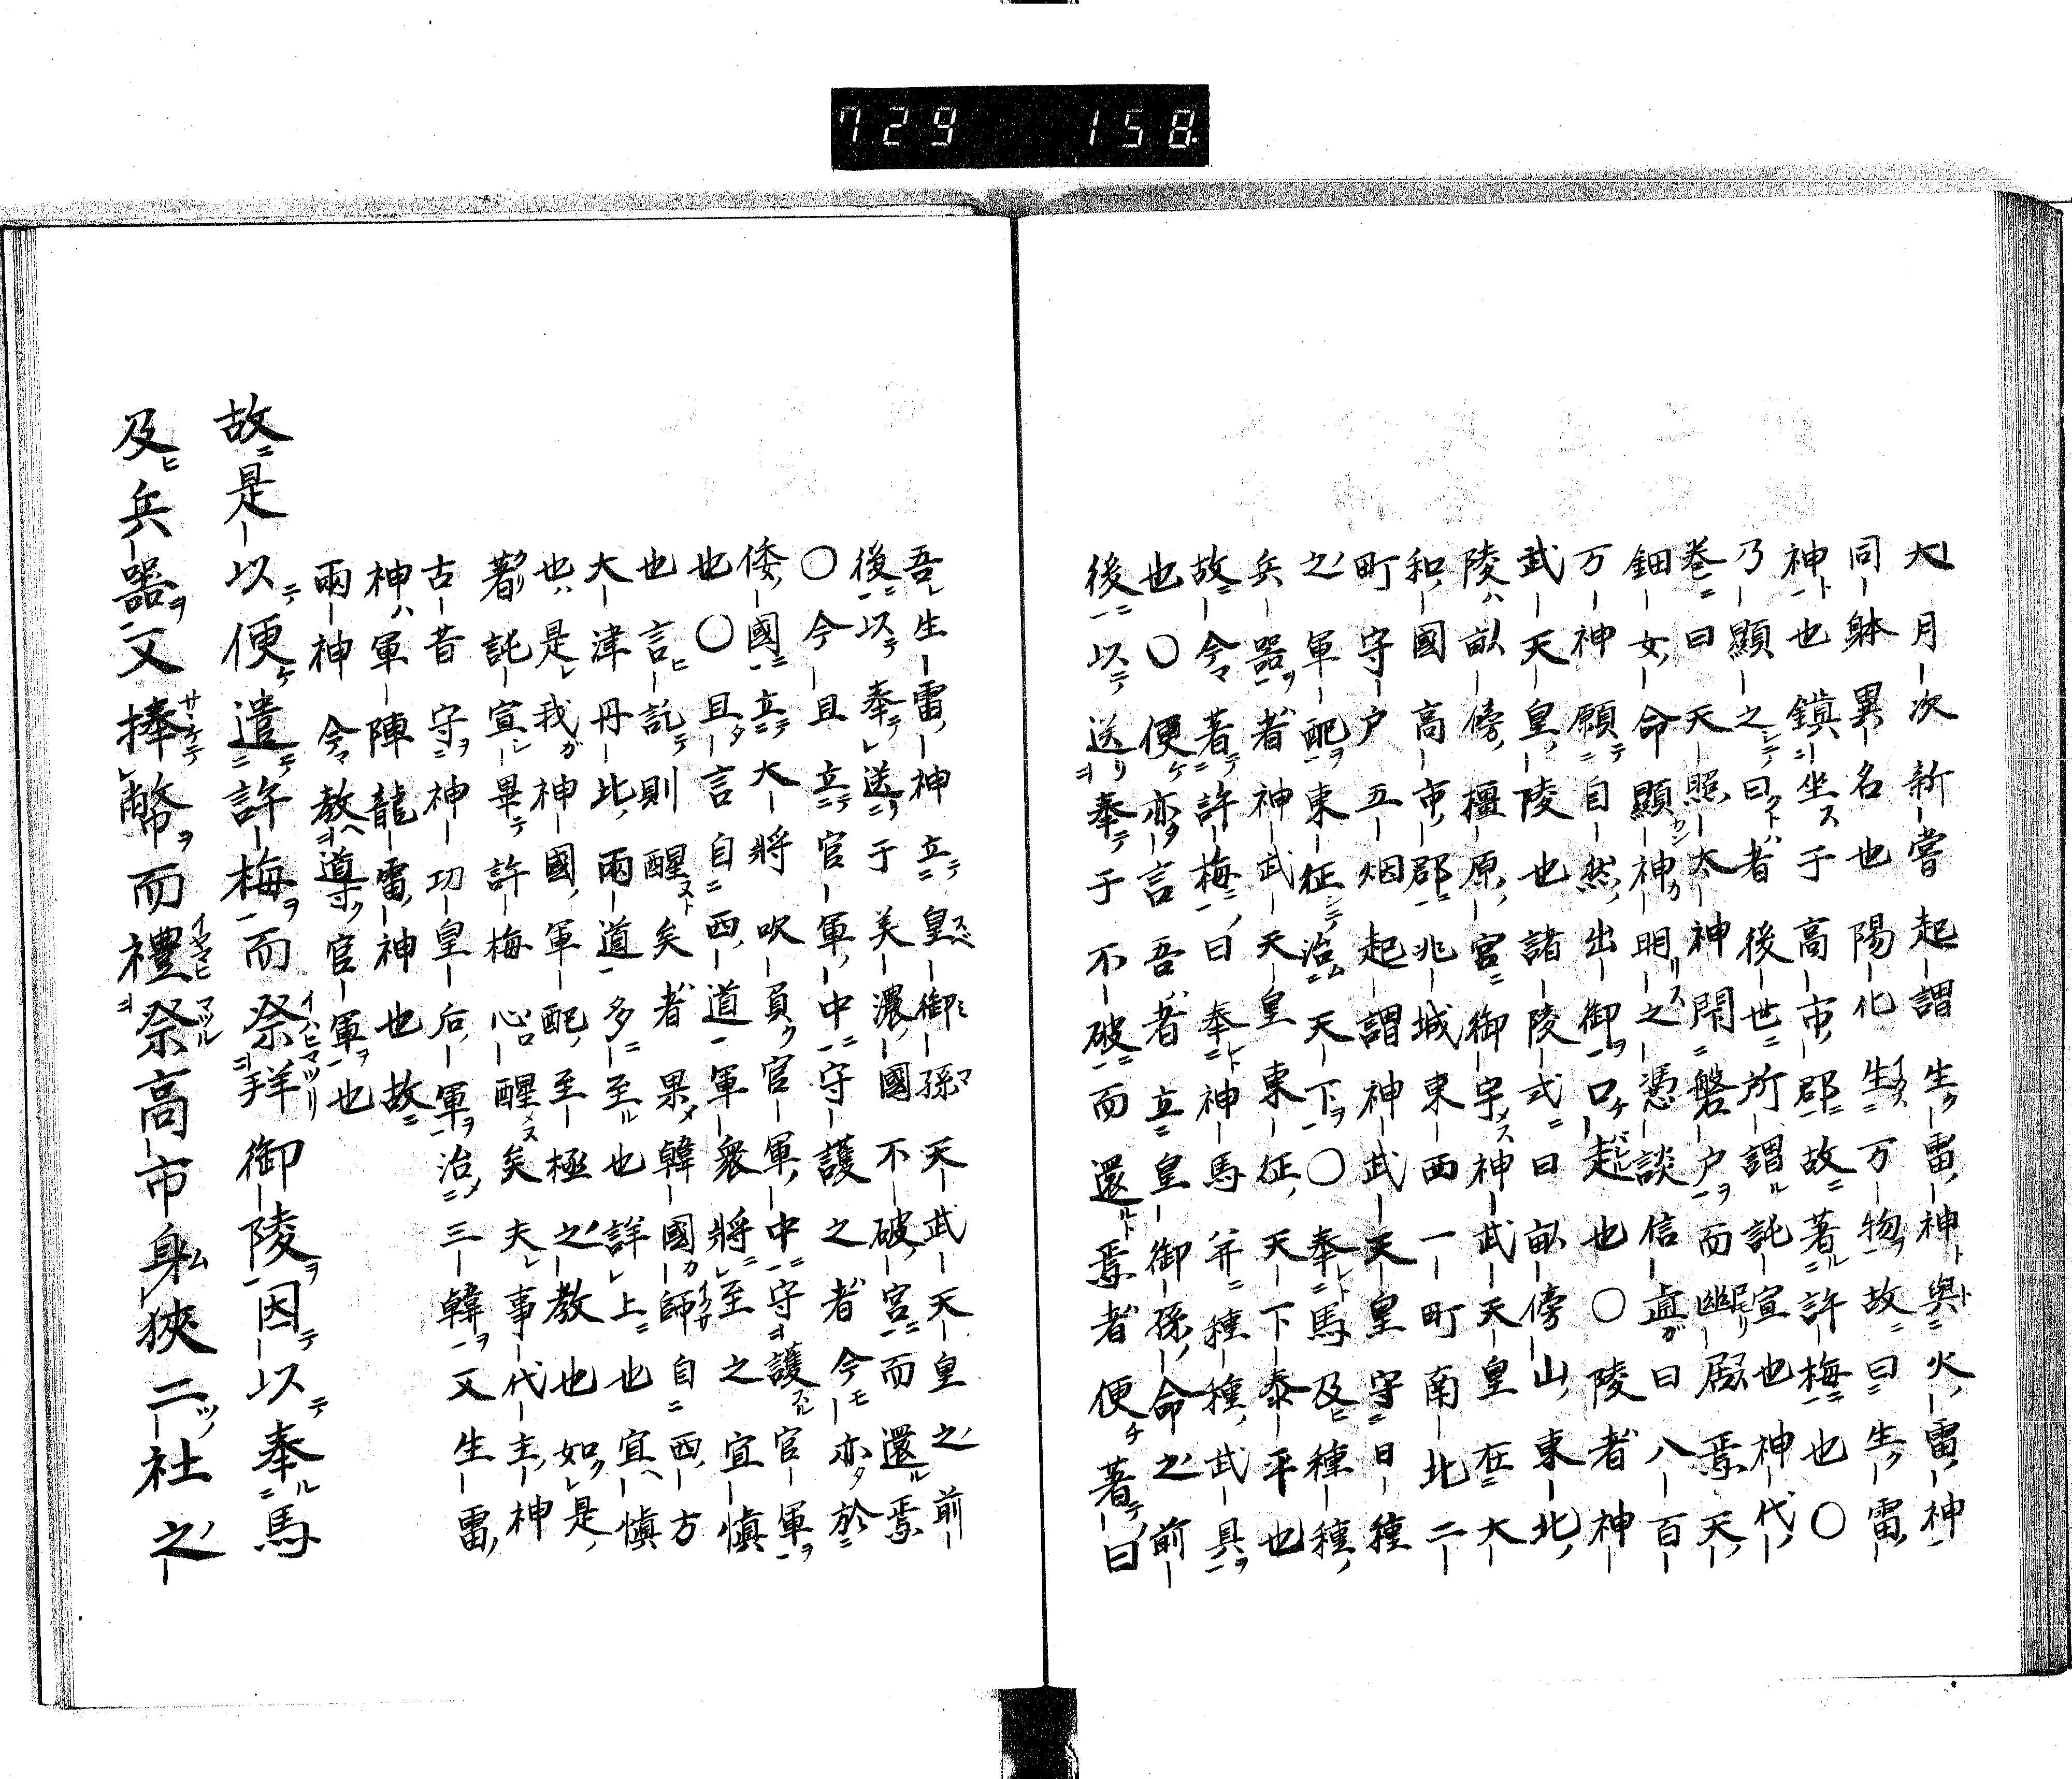 729 158.
大月次新嘗起謂生雷神與火雷神
同躰異名也陽化生万物故曰生雷
神也鎮坐于高市郡故著許梅也〇
乃顯之曰者後世所謂託宣也神代
巻曰天照太神閇磐戸而幽居焉天
鈿女命顯神明之憑談信直曰八百
万神願自然出御口起也〇陵者神
武天皇陵也諸陵式曰畝傍山東北
陵畝傍橿原宮御宇神武天皇在大
和國高市郡兆域東西一町南北二
町守戸五烟起謂神武天皇守日種
之軍配東征治天下〇奉馬及種種
兵器者神武天皇東征天下泰平也
故今著許梅曰奉神馬并種種武具
也〇便亦言吾者立皇御孫命之前
後以送奉于不破而還焉者便著曰
吾生雷神立皇御孫天武天皇之前
後以奉送于美濃國不破宮而還焉
〇今且立官軍中守護之者今亦於
倭國立大將吹負官軍中守護官軍
也〇且言自西道軍衆將至之宜慎
也言託則醒矣者果韓國師自西方
大津丹比兩道多至也詳上也宜慎
也是我神國軍配至極之教也如是
著託宣畢許梅心醒矣夫事代主神
古昔守神功皇后軍治三韓又生雷
神軍陣龍雷神也故
兩神今教導官軍也
故是以便遣許梅而祭拜御陵因以奉馬
及兵器又捧幣而禮祭高市身狹二社之